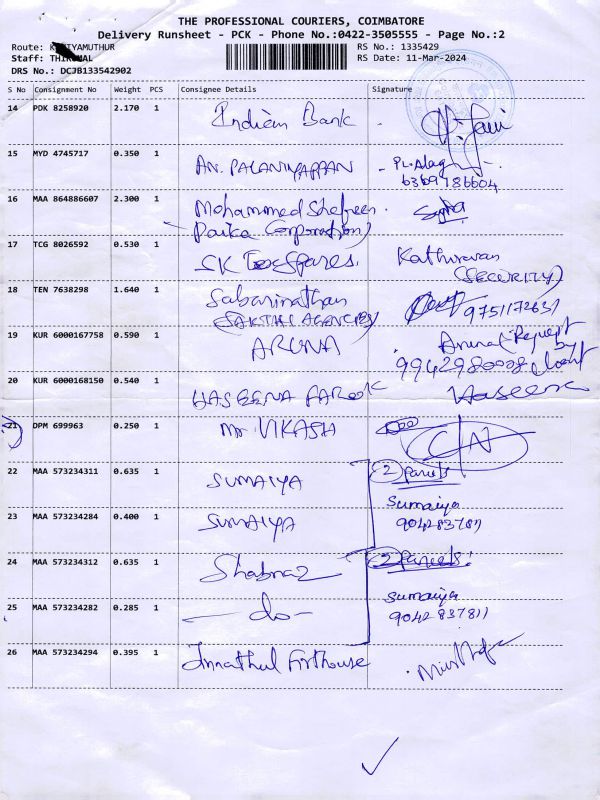 THE PROFESSIONAL COURIERS, COIMBATORE
Delivery Runsheet - PCK - Phone No.:0422-3505555 - Page No.:2
Route: K TYAMUTHUR
RS No.: 1335429
Staff: THIRUMAL
RS Date: 11-Mar-2024
DRS No.: DCJB133542902
S No Consignment No Weight PCS Consignee Details Signature
14 PDK 8258920 2.170 1 Indian Bank
15 MYD 4745717 0.350 1 AN. PALANIYAPPAN
6369786604
16 MAA 864886607 2.300 1 Mohammed Shefreen
Paika Corporation)
17 TCG 8026592 0.530 1 SK Tex Spares. Kathiravan
(SECURITY)
18 TEN 7638298 1.640 1 Sabarinathan
(SAKTHI AGENCIES) 9751172631
19 KUR 6000167758 0.590 1 ARUNA
9942980008 client
20 KUR 6000168150 0.540 1 HASEENA FAROOK Haseena
21 DPM 699963 0.250 1 Mr VIKASH C/N
22 MAA 573234311 0.635 1 SUMAIYA 2 Parcels
23 MAA 573234284 0.400 1 SUMAIYA Sumaiya
9042837811
24 MAA 573234312 0.635 1 Shabnaz 2 Parcels:
25 MAA 573234282 0.285 1 - do - Sumaiya
9042837811
26 MAA 573234294 0.395 1 Innathul Firthouse